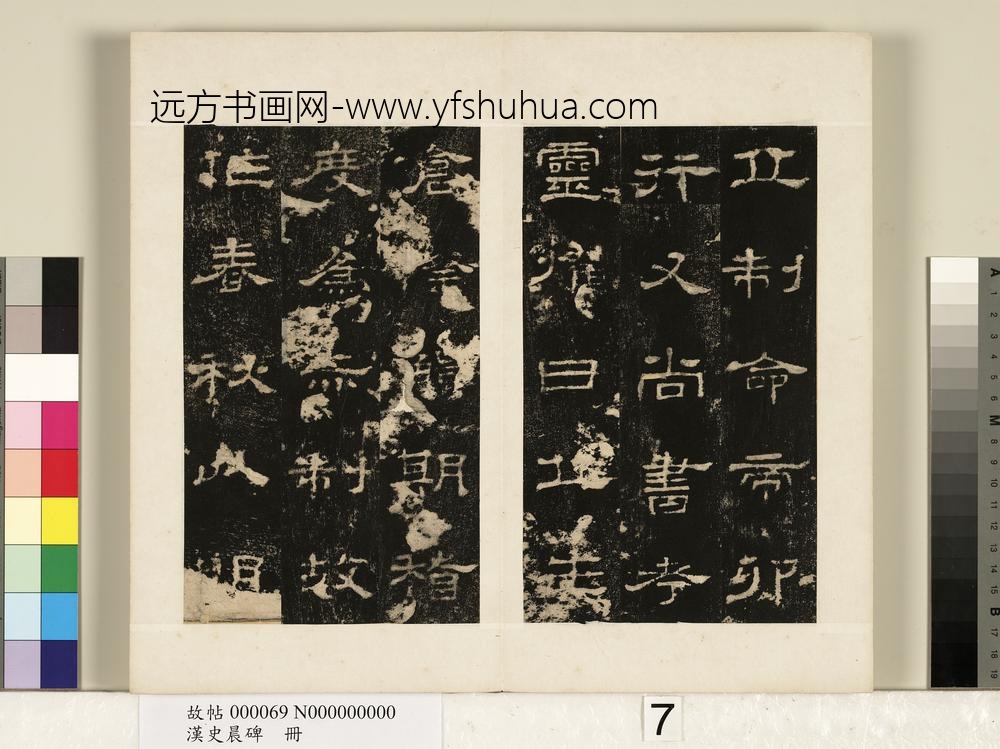 远方书画网-www.yfshuhua.com
立制命帝卯
行又尚書考
靈燿曰丘生
倉際觸期稽
度為赤制故
作春秋以明
故帖 000069 N000000000
漢史晨碑 冊
7
A 1 2 3 4 5 6 M 8 9 10 11 12 13 14 15 B 17 18 19